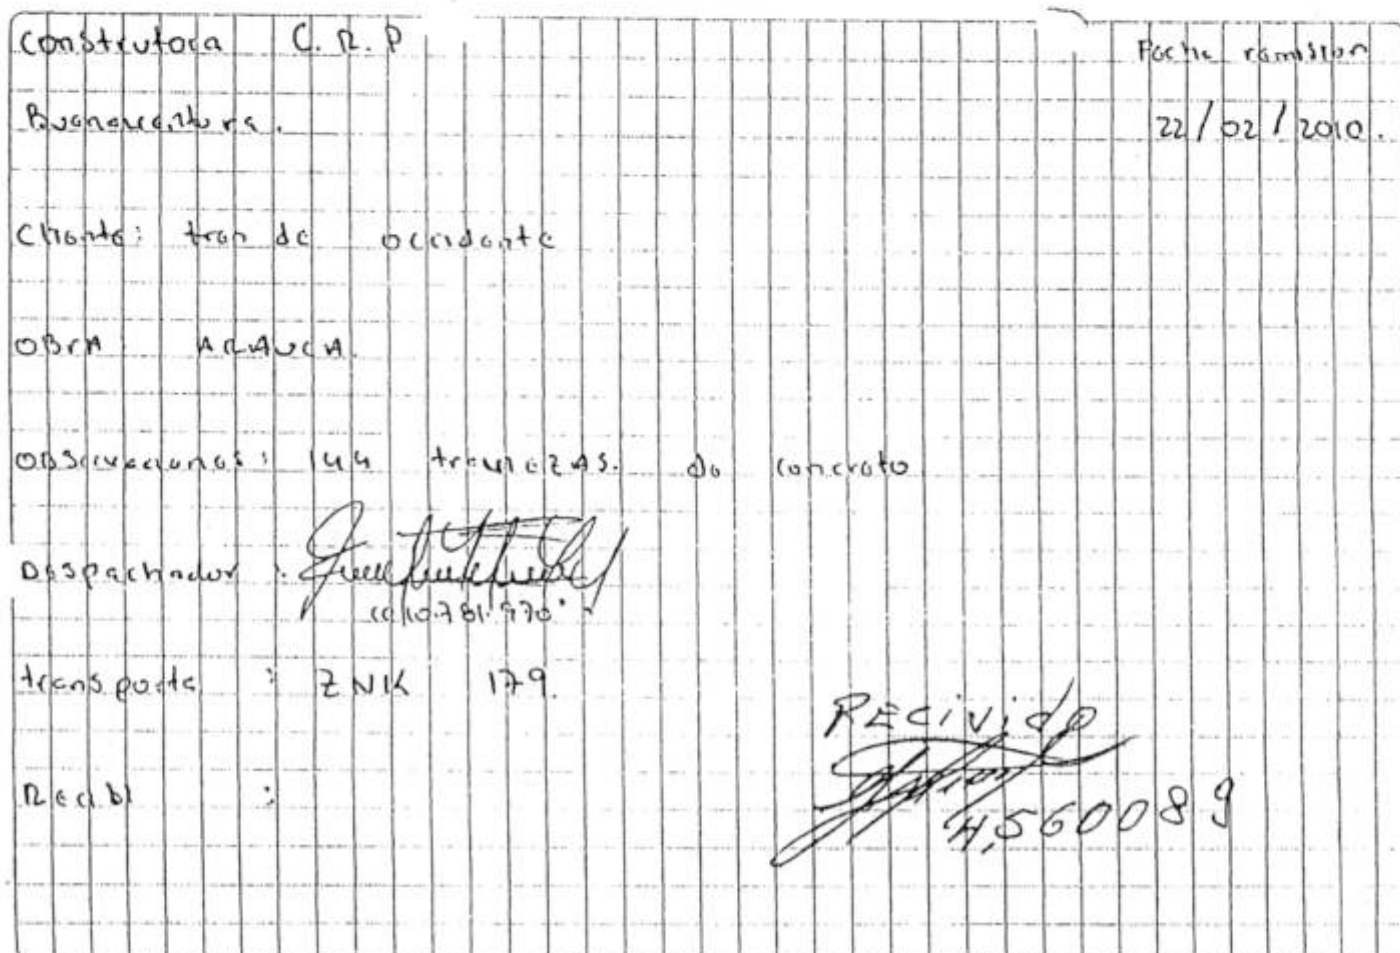 Construtora C.R.P
Fecha remision
Buenaventura.
22/02/2010.
Cliente: tren de occidente
OBrA ArAucA.
OBServaciones: 144 traviezAS. de concreto
Despachador :
cc 10.781.970
transporte : ZNK 179
RECivido
Recibi :
4,560089